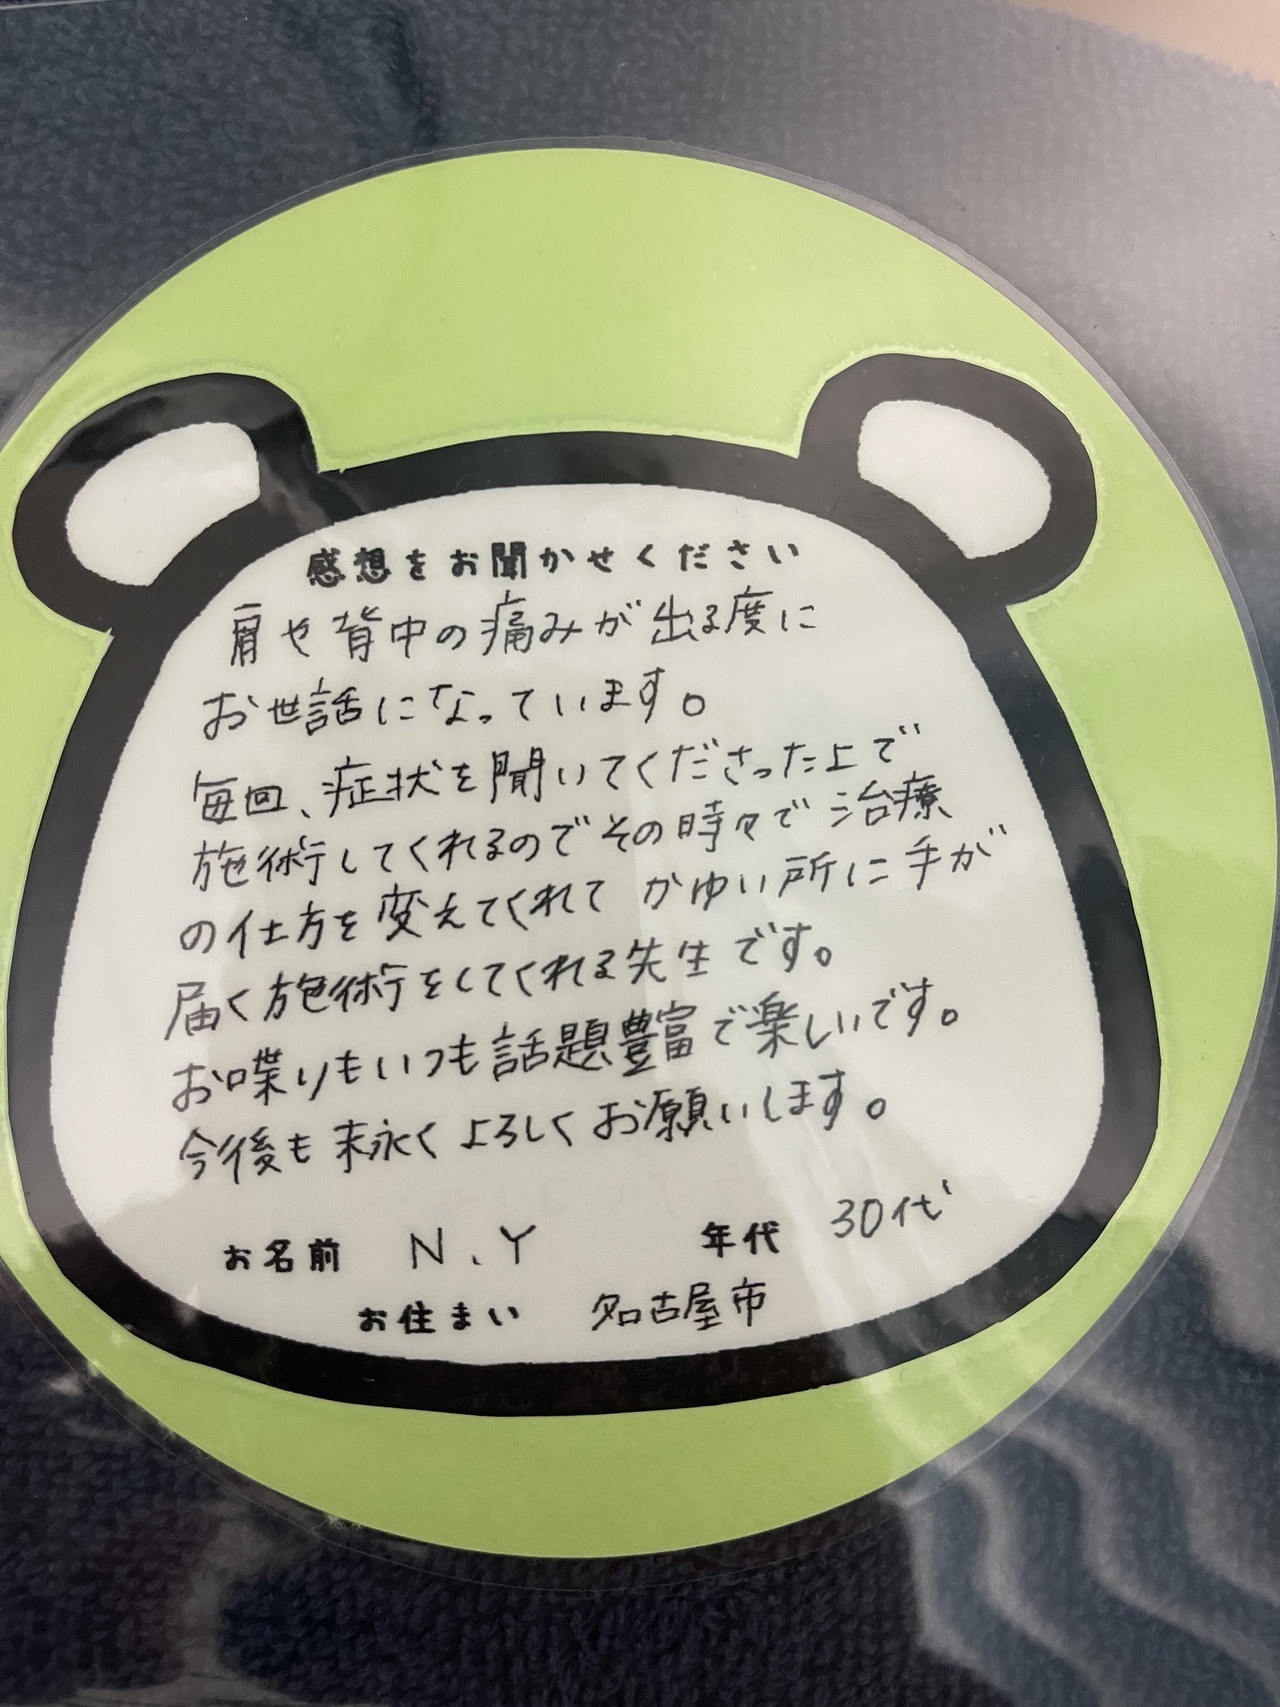 感想をお聞かせください
肩や背中の痛みが出る度に
お世話になっています。
毎回、症状を聞いてくださった上で
施術してくれるのでその時々で治療
の仕方を変えてくれてかゆい所に手が
届く施術をしてくれる先生です。
お喋りもいつも話題豊富で楽しいです。
今後も末永くよろしくお願いします。
お名前 N.Y 年代 30代
お住まい 名古屋市